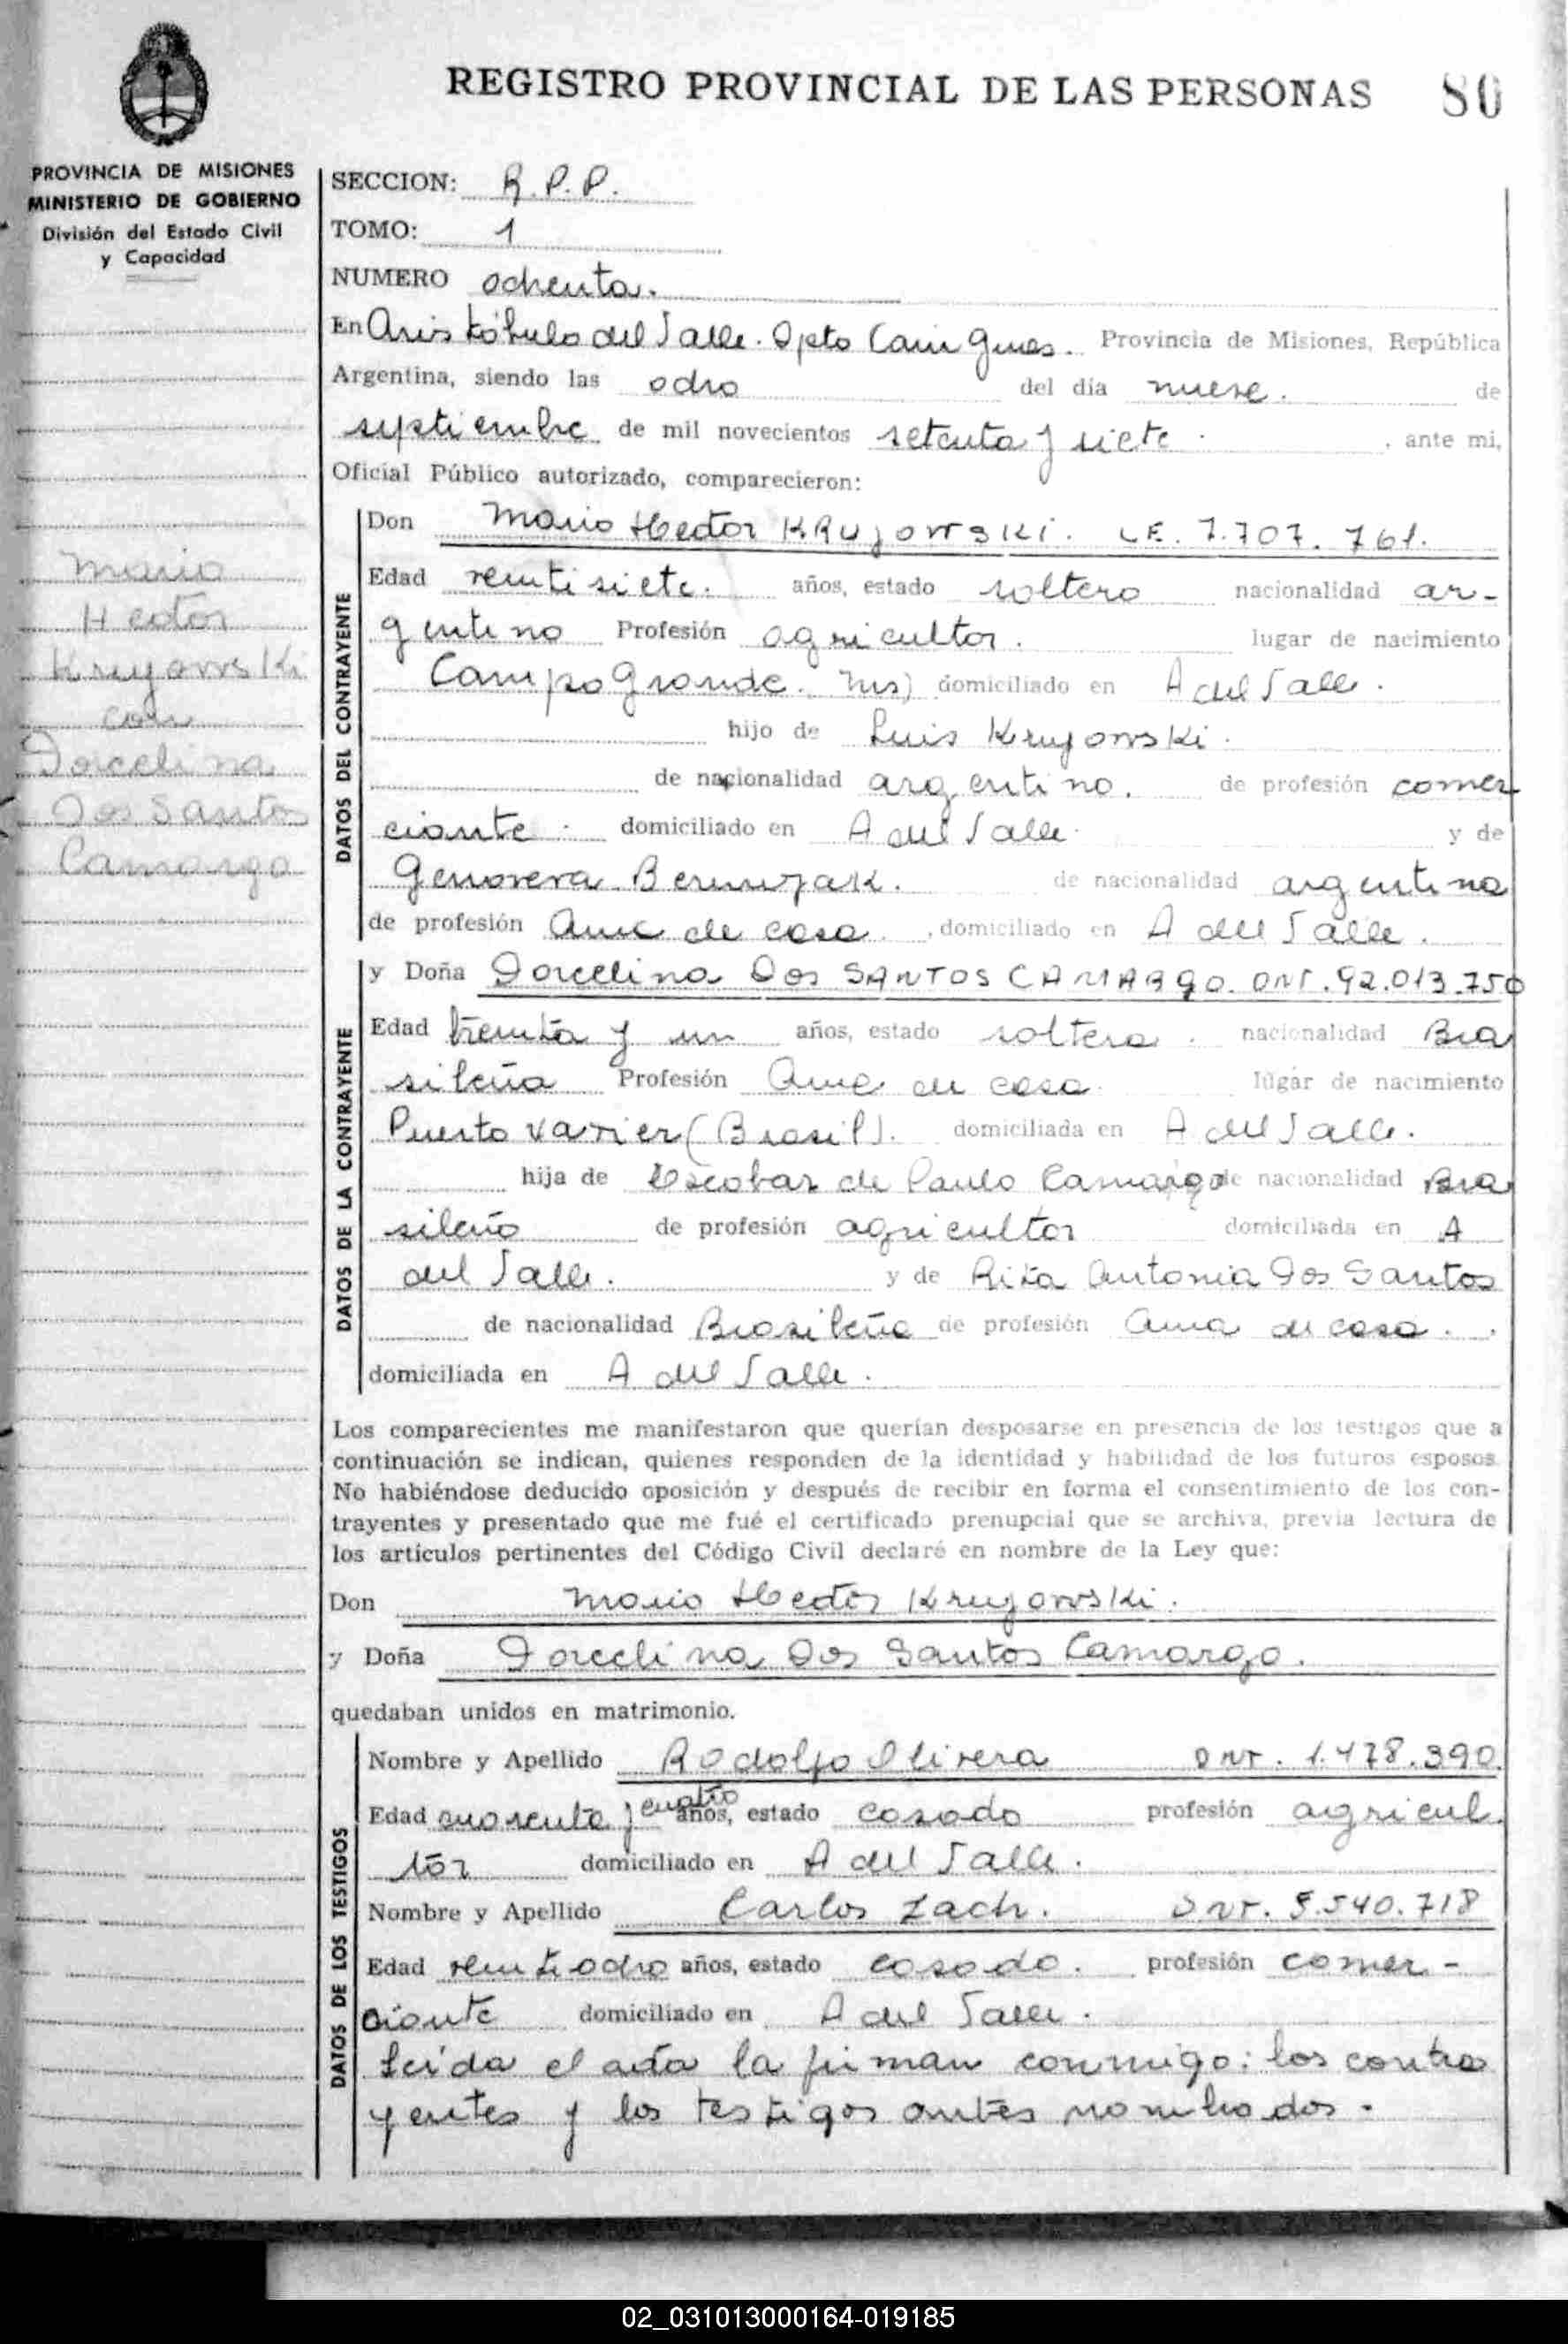 REGISTRO PROVINCIAL DE LAS PERSONAS 80
PROVINCIA DE MISIONES
MINISTERIO DE GOBIERNO
División del Estado Civil
y Capacidad
Mario
Hector
Kruyowski
con
Dorcelina
Dos Santos
Camargo
SECCION: R.P.P.
TOMO: 1
NUMERO ochenta.
En Aristóbulo del Valle. Dpto Cainguas. Provincia de Misiones, República
Argentina, siendo las ocho del día nueve. de
septiembre de mil novecientos setenta y siete . , ante mi,
Oficial Público autorizado, comparecieron:
DATOS DEL CONTRAYENTE
Don Mario Hector KRUyowski. L.E. 7.707.761.
Edad veintisiete. años, estado soltero nacionalidad ar-
gentino Profesión agricultor. lugar de nacimiento
Campo Grande. Mns) domiciliado en A del Valle.
hijo de Luis Kruyowski.
de nacionalidad argentino. de profesión comer
ciante. domiciliado en A del Valle. y de
Genovera de nacionalidad argentina
de profesión Ama de casa. , domiciliado en A del Valle.
DATOS DE LA CONTRAYENTE
y Doña Dorcelina Dos SANTOS CAMARGO. DNI. 92.013.750
Edad treinta y un años, estado soltera. nacionalidad Bra
sileña Profesión Ama de casa. lugar de nacimiento
Puerto Xavier (Brasil). domiciliada en A del Valle.
hija de Escobar de Paulo Camargo de nacionalidad Bra
sileño de profesión agricultor domiciliada en A
del Valle. y de Rita Antonia Dos Santos
de nacionalidad Brasileña de profesión Ama de casa.
domiciliada en A del Valle.
Los comparecientes me manifestaron que querían desposarse en presencia de los testigos que a
continuación se indican, quienes responden de la identidad y habilidad de los futuros esposos.
No habiéndose deducido oposición y después de recibir en forma el consentimiento de los con-
trayentes y presentado que me fué el certificado prenupcial que se archiva, previa lectura de
los artículos pertinentes del Código Civil declaré en nombre de la Ley que:
Don Mario Hector Kruyowski.
y Doña Dorcelina Dos Santos Camargo.
quedaban unidos en matrimonio.
DATOS DE LOS TESTIGOS
Nombre y Apellido Rodolfo Olivera DNI. 1.478.390
Edad cuarenta y cuatro años, estado casado profesión agricul
tor domiciliado en A del Valle.
Nombre y Apellido Carlos Zach. DNI. 5.540.718
Edad veintiocho años, estado casado. profesión comer-
ciante domiciliado en A del Valle.
Leida el acta la firman conmigo: los contra
yentes y los testigos antes nombrados.
02_031013000164-019185